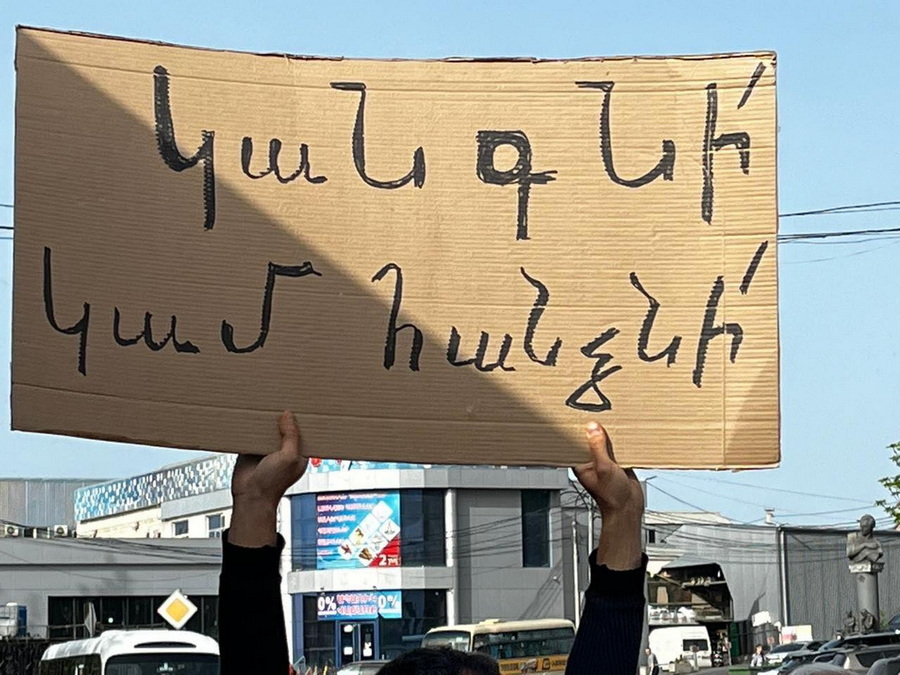 կանգնի՛
կամ հանձնի՛
0% 0%